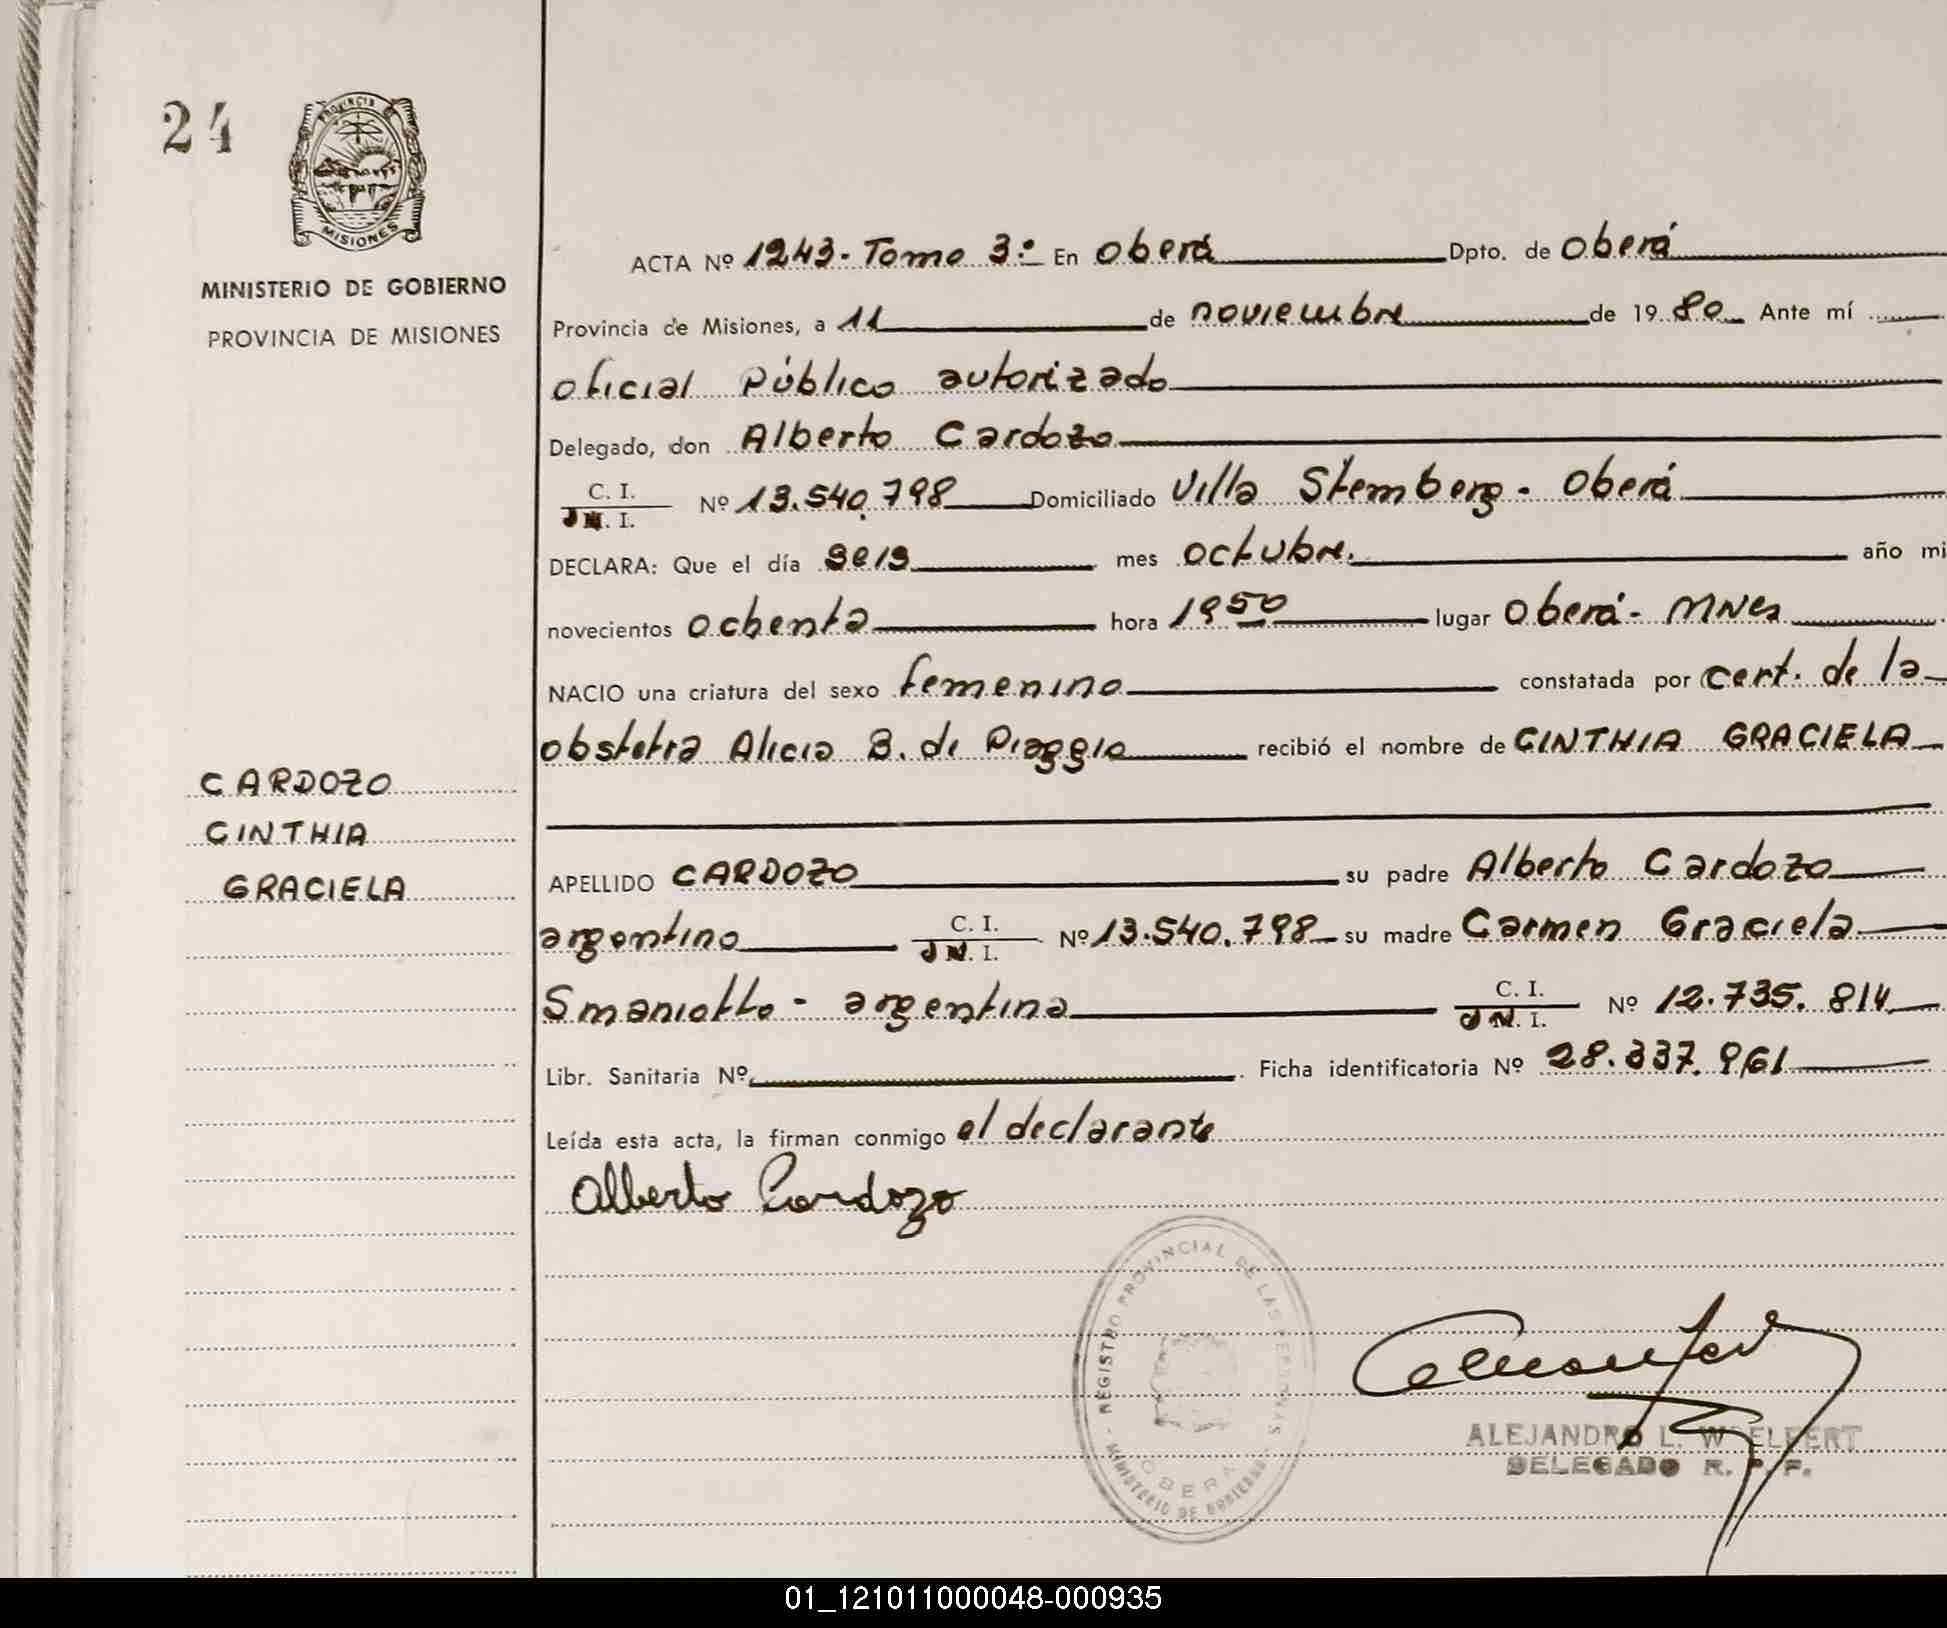 24
PROVINCIA DE
MISIONES
MINISTERIO DE GOBIERNO
PROVINCIA DE MISIONES
CARDOZO
CINTHIA
GRACIELA
ACTA Nº 1243. Tomo 3º En Oberá Dpto. de Oberá
Provincia de Misiones, a 11 de noviembre de 1980 Ante mí
oficial Público autorizado
Delegado, don Alberto Cardozo
C. I.
Nº 13.540.798 Domiciliado Villa Stemberg - Oberá
DECLARA: Que el día seis mes octubre. año mi
novecientos ochenta hora 1950 lugar Oberá - MNes
NACIO una criatura del sexo femenino constatada por cert. de la
obstetra Alicia B. de Piaggio recibió el nombre de CINTHIA GRACIELA
APELLIDO CARDOZO su padre Alberto Cardozo
argentino C. I. Nº 13.540.798 su madre Carmen Graciela
Smaniotto - argentina C. I. Nº 12.735.814
Libr. Sanitaria Nº Ficha identificatoria Nº 28.337.961
Leída esta acta, la firman conmigo el declarante
Alberto Cardozo
REGISTRO PROVINCIAL DE LAS PERSONAS
MINISTERIO DE GOBIERNO
OBERA
ALEJANDRO L.
DELEGADO R. P. P.
01_121011000048-000935